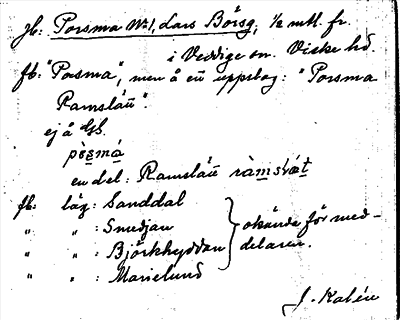 Jb: Porsma Nr 1, dars Börsg, 1/2 mtl. fr.
i Veddige sn. Viske hd.
fb: "Posma", men å en uppslag: "Porsma
Ramslätt".
ej å Gs.
pòsmá
en del: Ramslätt ràmslæ̀t
fb: läg: Sanddal
" " : Smedjan
" " : Björkhyddan
" " : Marielund
okända för med-
delaren.
J. Kalén